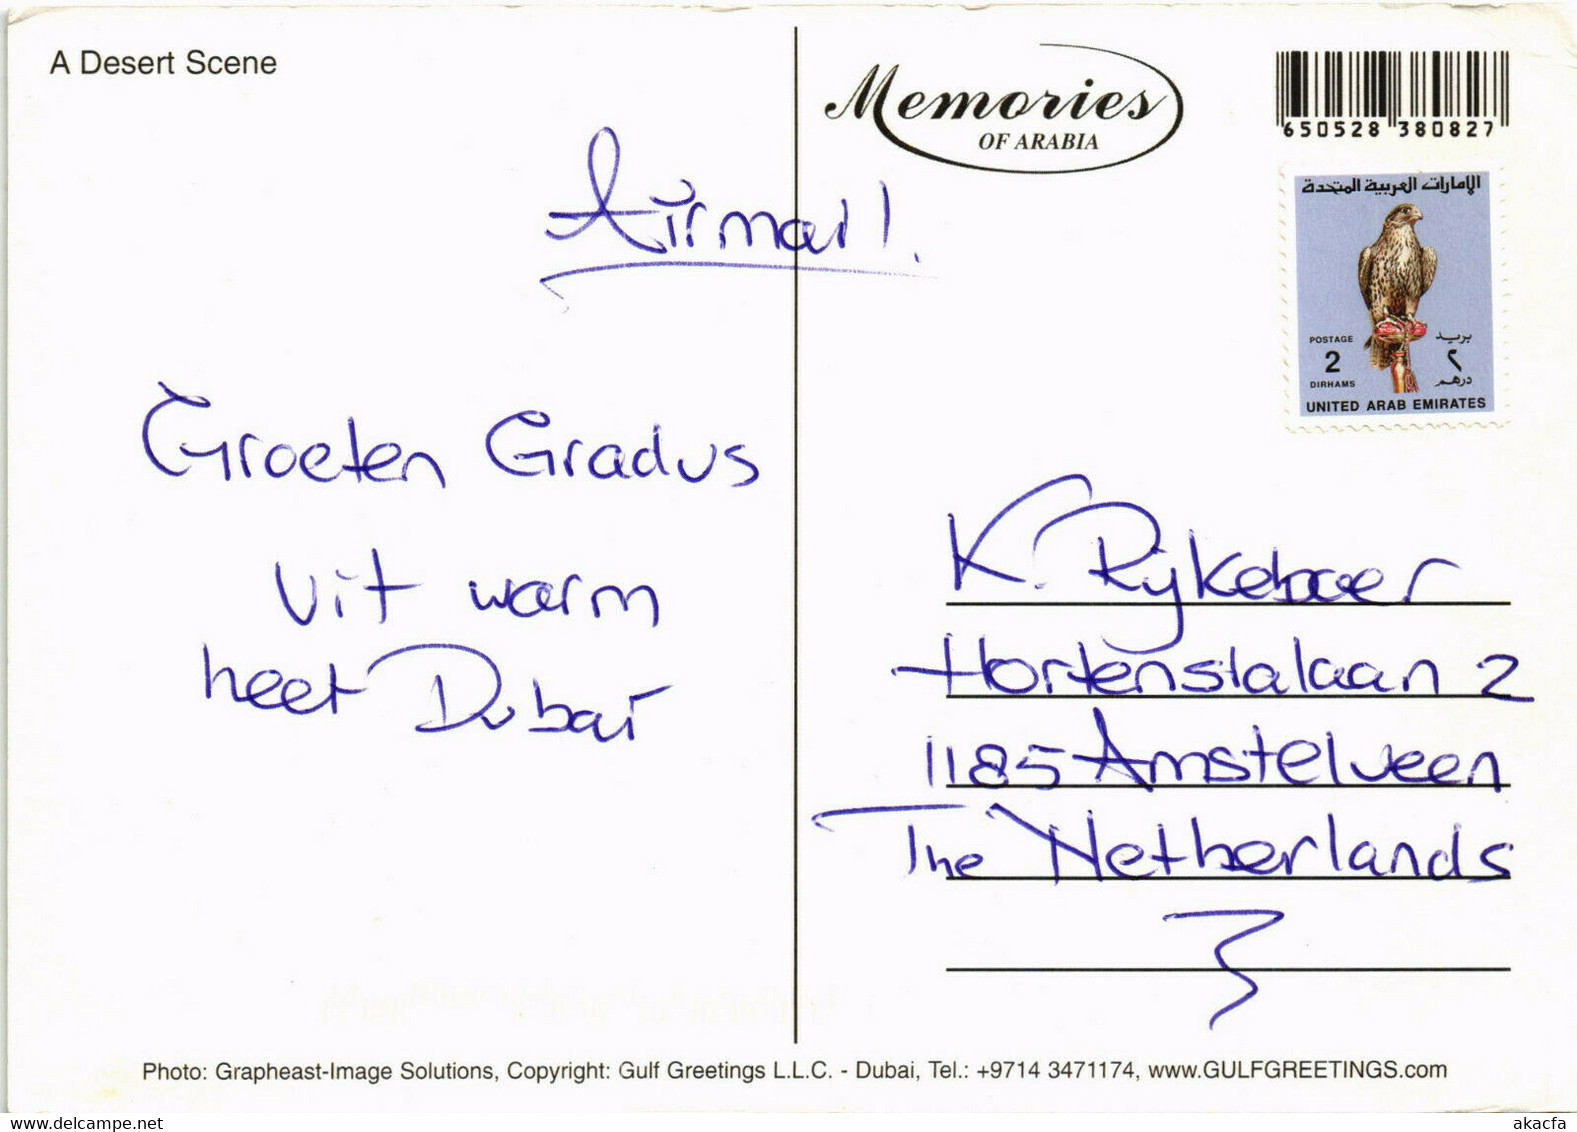 A Desert Scene
Memories
OF ARABIA
650528 380827
Airmail!
الإمارات العربية المتحدة
POSTAGE
2
DIRHAMS
بريد
٢
درهم
UNITED ARAB EMIRATES
Groeten Gradus
uit warm
heet Dubai
K. Rijkeboer
Hortensialaan 2
1185 Amstelveen
The Netherlands
Photo: Grapheast-Image Solutions, Copyright: Gulf Greetings L.L.C. - Dubai, Tel.: +9714 3471174, www.GULFGREETINGS.com
delcampe.net
akacfa